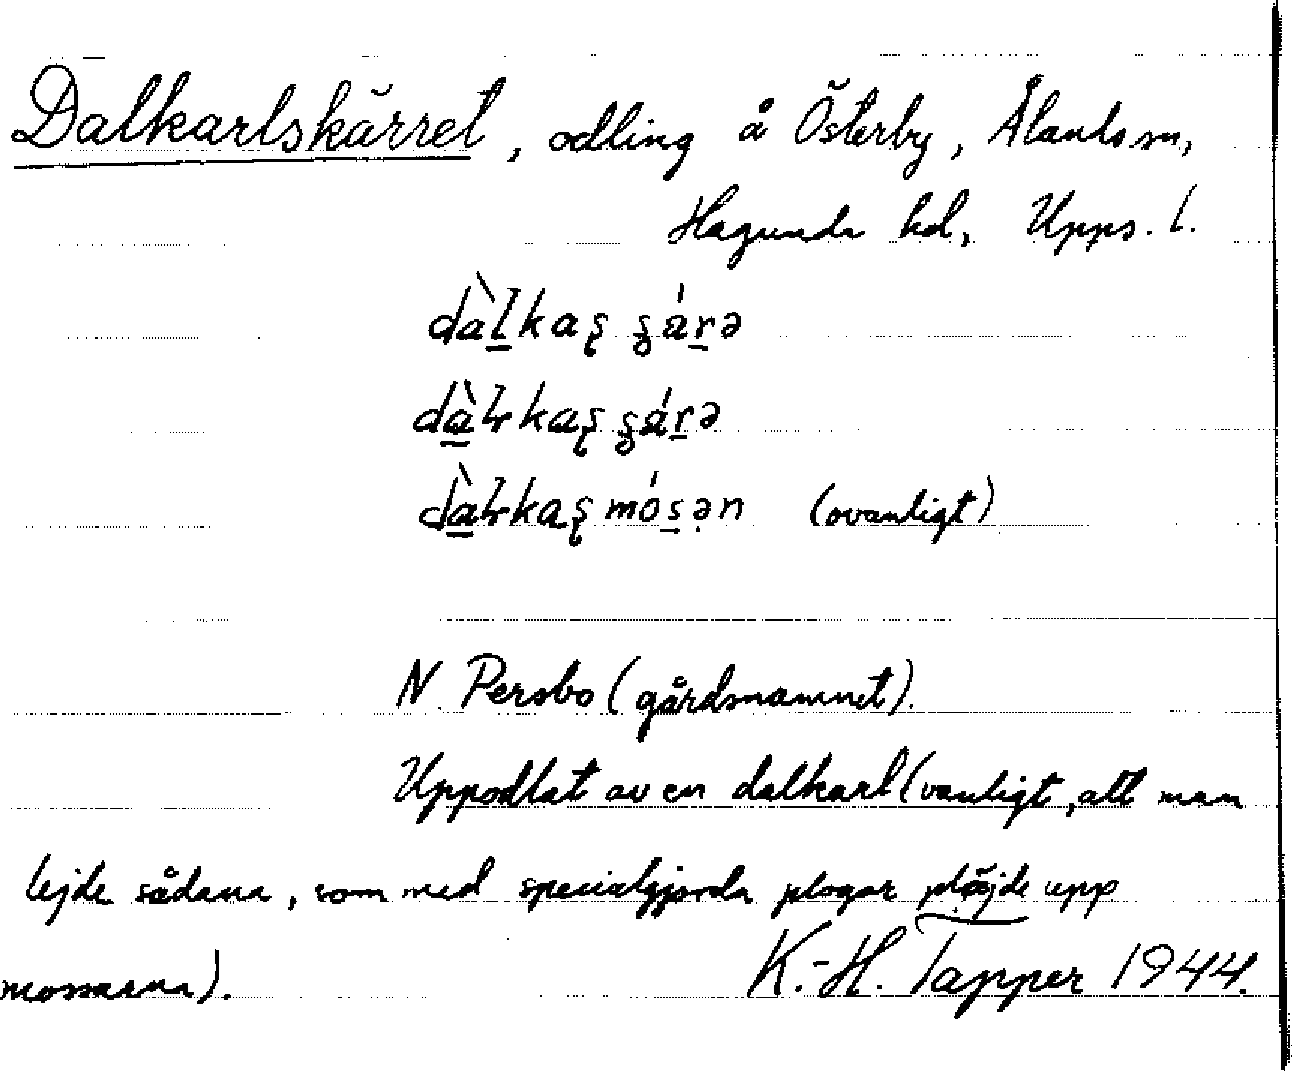 Dalkarlskärret, odling å Österby, Ålands sn,
Hagunda hd, Upps. l.
dàl̲kaʂ ʂár̲ə
dà̲ɬkaʂ ʂár̲ə
dà̲ɬkaʂmós̲ən (ovanligt)
N Persbo (gårdsnamnet).
Uppodlat av en dalkarl (vanligt, att man
lejde sådana, som med specialgjorda plogar plöjde upp
mossarna).
K.-H. Tapper 1944.